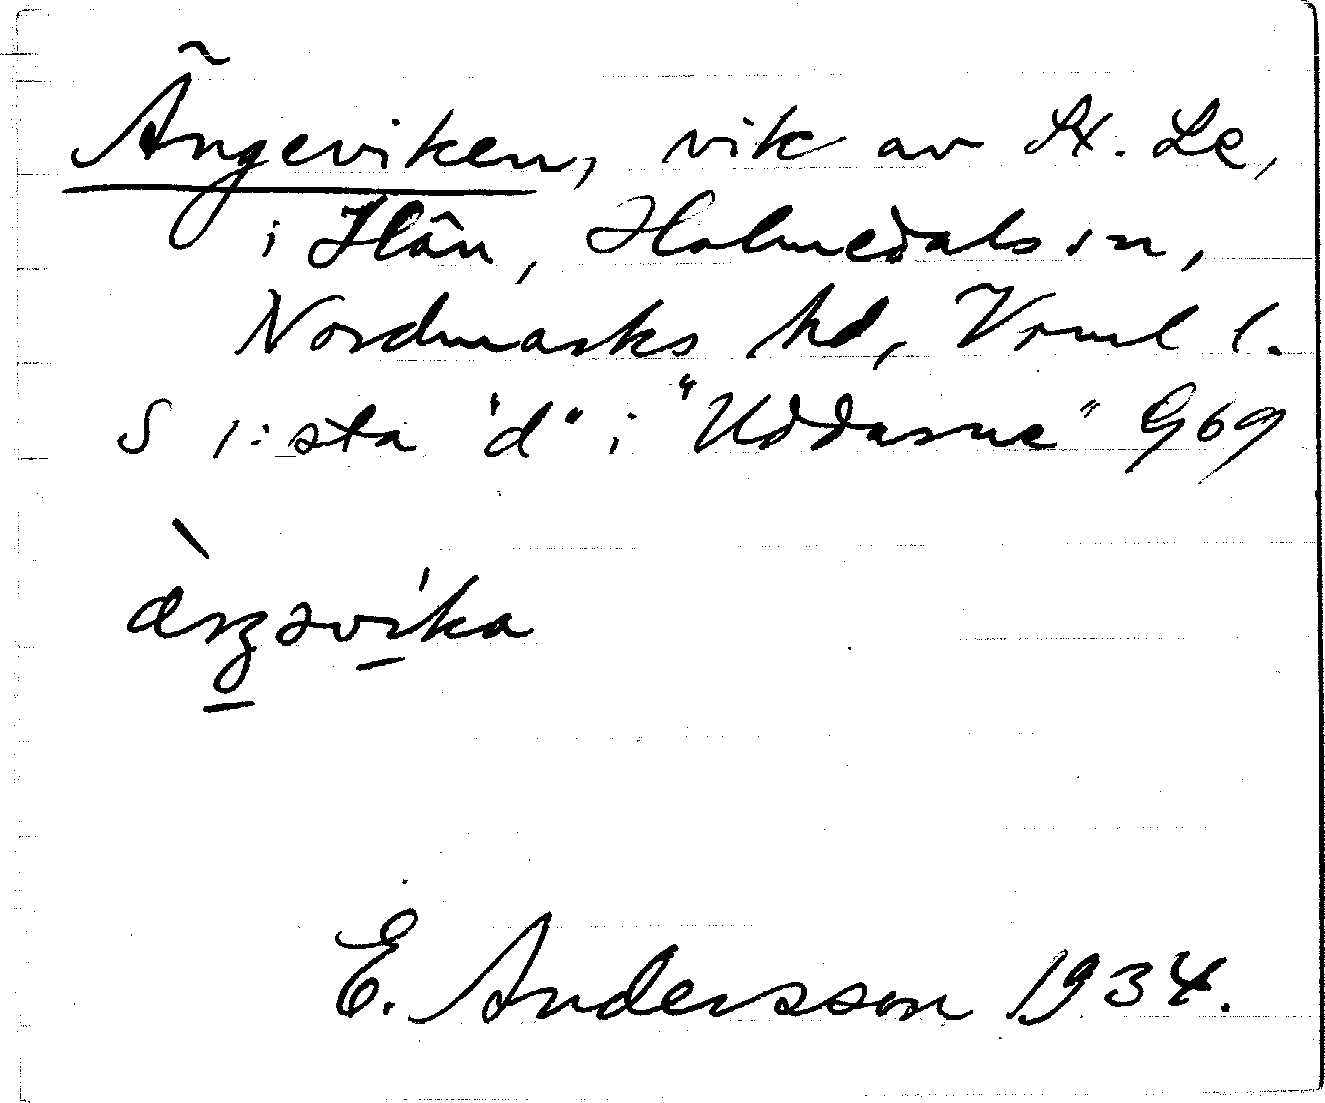 Ängeviken, vik av St. Le,
i Hån, Holmedals sn,
Nordmarks hd, Vrml l.
S 1:sta "d" i "Uddarne" G69
æŋəvika
E. Andersson 1934.